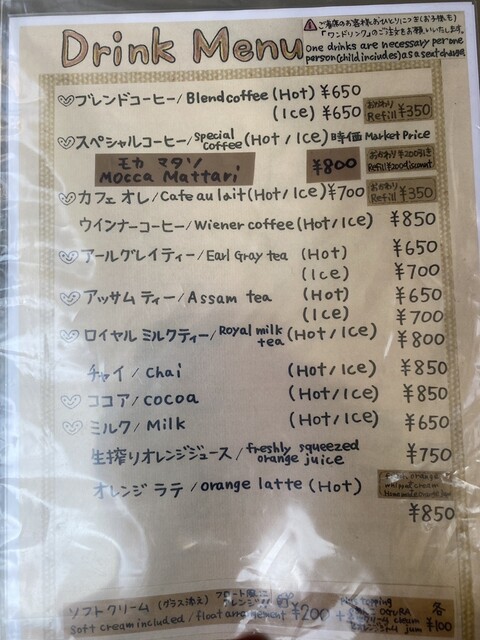 Drink Menu
⚠ご来店のお客様おひとりにつき(お子様も)
「ワンドリンク」のご注文をお願いいたします。
one drinks are necessary per one
person(child includes) as a seat charge
ブレンドコーヒー/Blend coffee (Hot) ¥650
(Ice) ¥650 おかわり Refill ¥350
スペシャルコーヒー/special coffee (Hot/Ice) 時価 Market Price
モカ マタリ
Mocca Mattari ¥800 おかわり ¥200引き
Refill ¥200 discount
カフェ オレ/Cafe au lait (Hot/Ice) ¥700 おかわり Refill ¥350
ウインナーコーヒー/Wiener coffee (Hot/Ice) ¥850
アールグレイティー/Earl Gray tea (Hot) ¥650
(Ice) ¥700
アッサム ティー/Assam tea (Hot) ¥650
(Ice) ¥700
ロイヤル ミルクティー/Royal milk tea (Hot/Ice) ¥800
チャイ/chai (Hot/Ice) ¥850
ココア/cocoa (Hot/Ice) ¥850
ミルク/Milk (Hot/Ice) ¥650
生搾りオレンジジュース/freshly squeezed orange juice ¥750
オレンジ ラテ/orange latte (Hot)
whipped cream
¥850
ソフトクリーム (グラス添え) ¥200 + topping 各
soft cream included / float arrangement OGURA cream jam ¥100